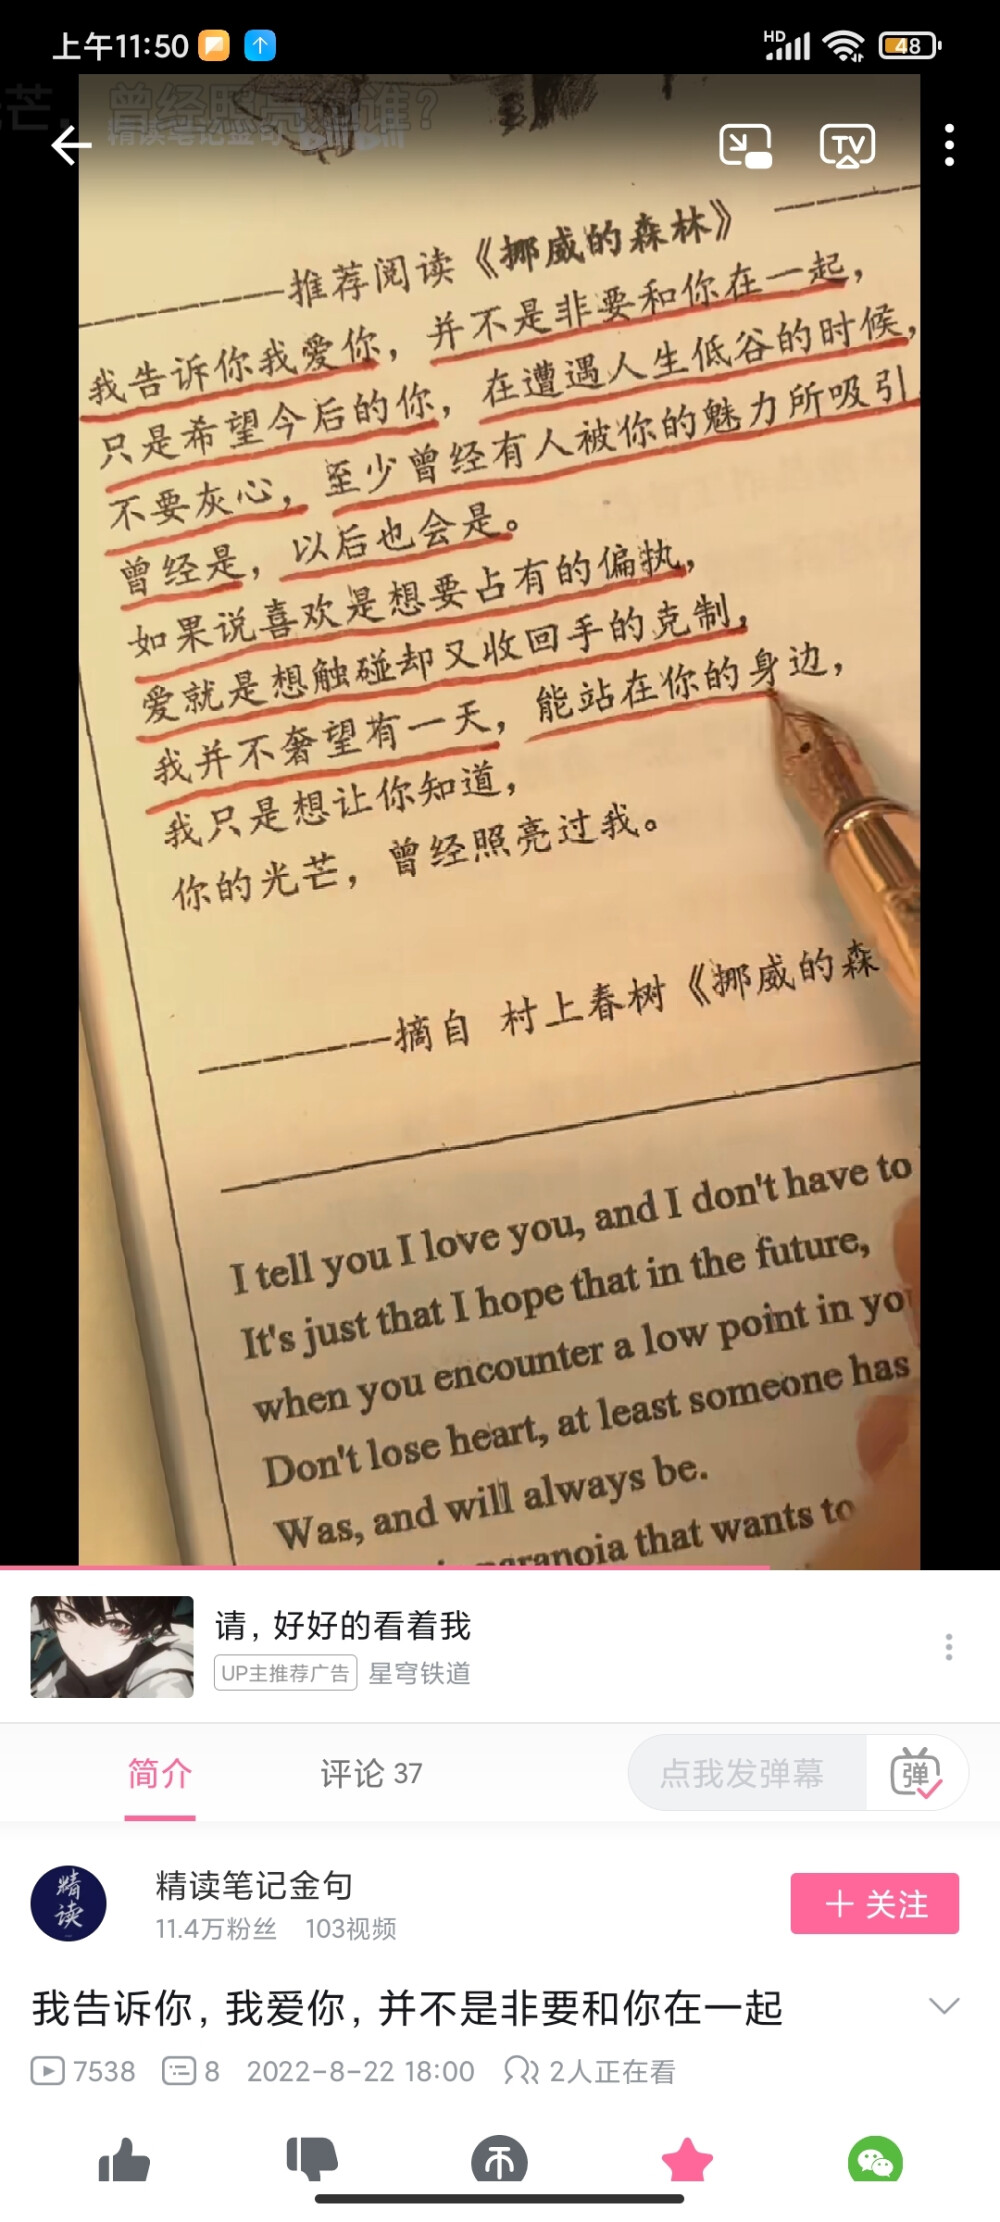 上午11:50
HD
48
芒，曾经照亮过谁？
精读笔记金句
TV
推荐阅读《挪威的森林》
我告诉你我爱你，并不是非要和你在一起，
只是希望今后的你，在遭遇人生低谷的时候，
不要灰心，至少曾经有人被你的魅力所吸引
曾经是，以后也会是。
如果说喜欢是想要占有的偏执，
爱就是想触碰却又收回手的克制，
我并不奢望有一天，能站在你的身边，
我只是想让你知道，
你的光芒，曾经照亮过我。
摘自 村上春树《挪威的森
I tell you I love you, and I don't have to
It's just that I hope that in the future,
when you encounter a low point in yo
Don't lose heart, at least someone has
Was, and will always be.
paranoia that wants to
请，好好的看着我
UP主推荐广告 星穹铁道
简介 评论 37 点我发弹幕 弹
精读
精读笔记金句
11.4万粉丝 103视频
+ 关注
我告诉你，我爱你，并不是非要和你在一起
7538 8 2022-8-22 18:00 2人正在看